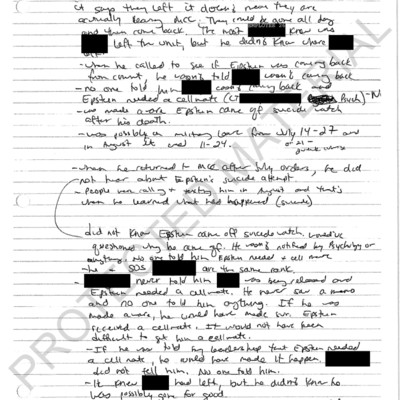 it says they left it doesn't mean they are
actually leaving MCC. They could be gone all day
and then come back. The most knew was
left the unit, but he didn't know where
- when he called to see if Epstein was coming back
from court, he wasn't told wasn't coming back
- no one told him wasn't coming back and
Epstein needed a cellmate (LT
- was made aware Epstein came off suicide watch
after his death.
- was possibly on military leave from July 14-27 and
in August it was 11-24.
- when he returned to MCC after July orders, he did
not hear about Epstein's suicide attempt.
- People were calling + texting him in August and that's
when he learned what had happened (suicide)
did not know Epstein came off suicide watch.
questions why he came off. He wasn't notified by Psychology or
anything. No one told him Epstein needed a cell mate
- the SOS are on the same rank.
- never told him was being released and
Epstein needed a cellmate. He never saw a memo
and no one told him anything. If he was
made aware, he would have made sure Epstein
received a cellmate. It would not have been
difficult to get him a cellmate.
- If he was told by leadership that Epstein needed
a cell mate, he would have made it happen.
did not tell him. No one told him.
- It knew had left, but he didn't know he
was possibly gone for good.